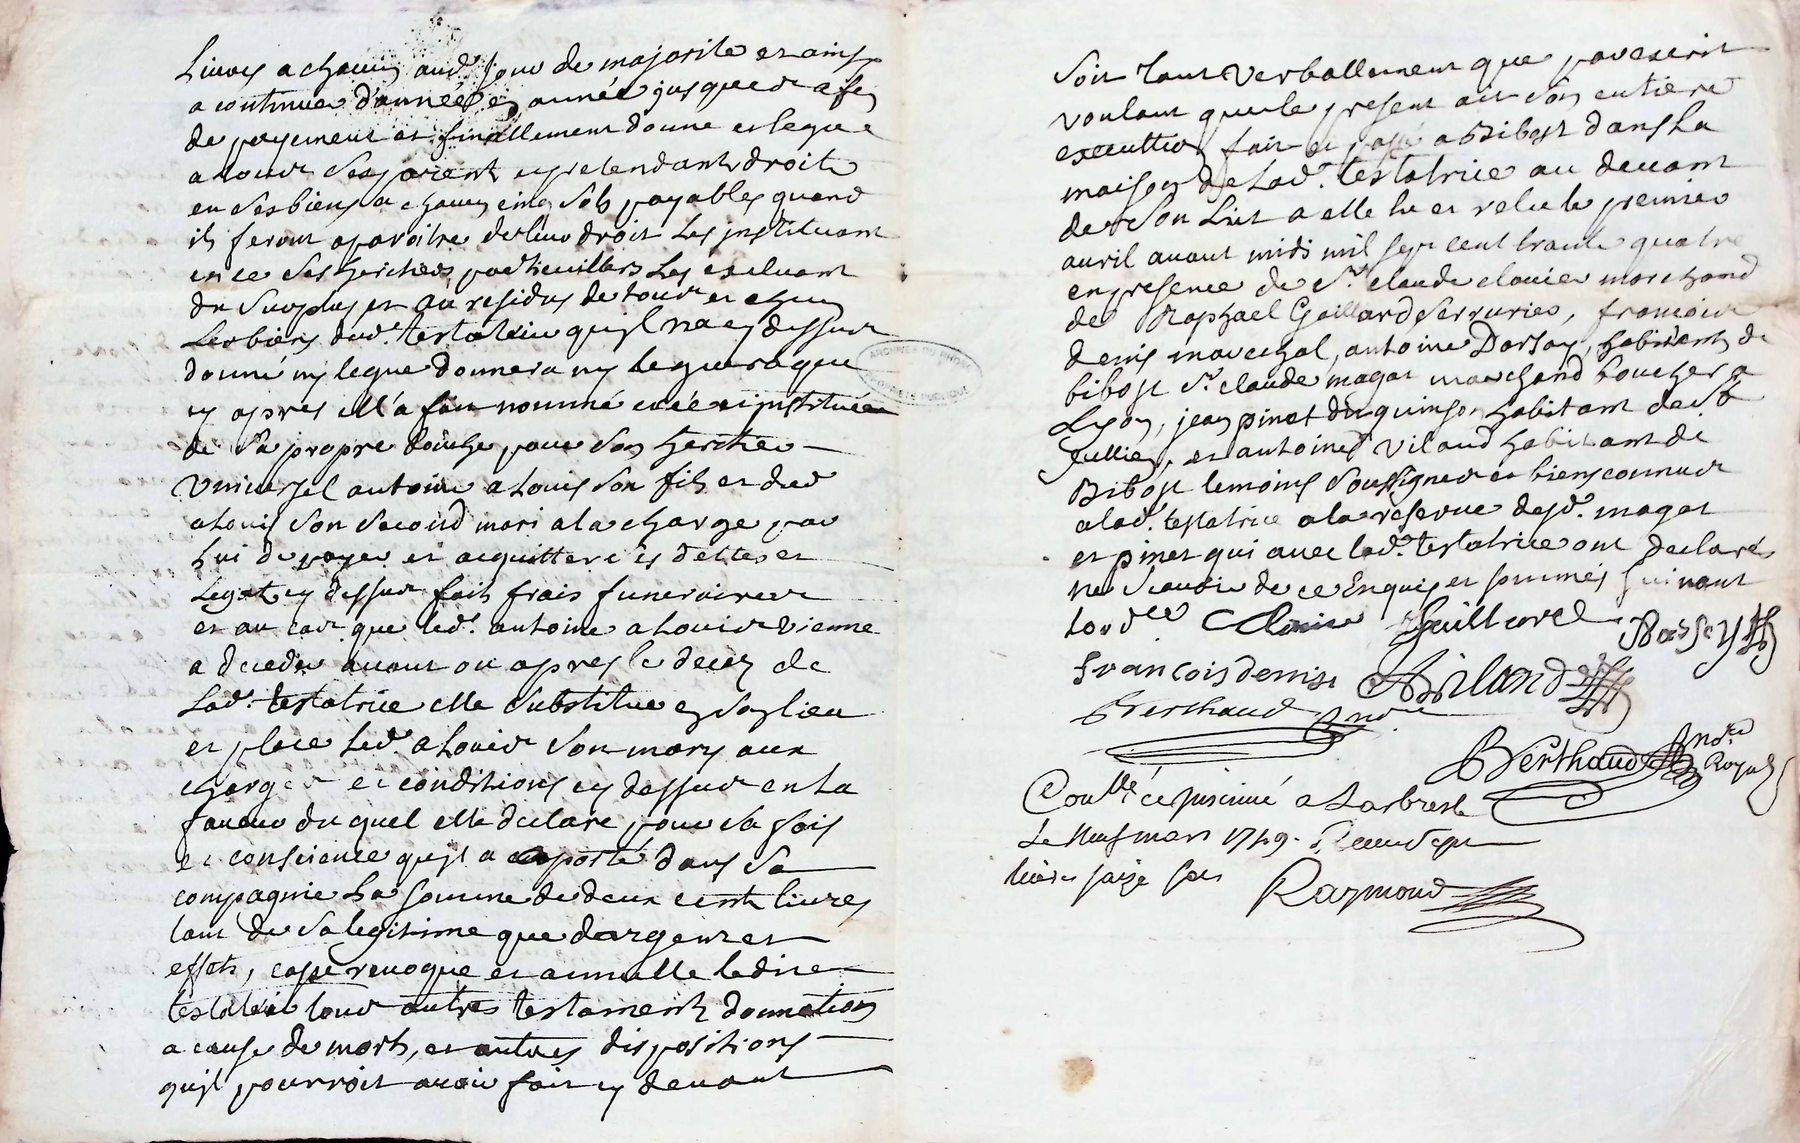 livres a chacun aud. jour de majorite et ainsy
a continuer d'année en année jusques a fin
de payement et finallement donne et legue
a tous ses parents et pretendants droits
en ses biens a chacun cinq sols payables quand
ils feront aparoitre de leur droit les instituant
en ce ses heritiers particulliers les excluant
du surplus et au residus de tous et chacun
les biens de lad. testatrice quil na cy dessus
donné ny legue donnera ny leguera que
cy apres ell'a fait nommé créé et instituée
de sa propre bouche pour son heritier
universel antoine alouis son fils et dud
alouis son second mari a la charge par
lui de payer et acquitter ces dettes et
legats cy dessus faits frais funeraires
et au cas que led. antoine alouis vienne
a deceder avant ou apres le deces de
lad. testatrice elle substitue en son lieu
et place led. alouis son mary aux
charges et conditions cy dessus en la
faveur du quel elle declare pour sa foit
et conscience quil a aporté dans sa
compagnie la somme de deux cents livres
tant de sa legitime que dargent et
effets, casse revoque et annulle ladite
testatrice tous autres testaments donnations
a cause de mort, et autres dispositions
quil pourroit avoir fait cy devant
soit tant verballement que par escrit
voulant que le present ait son entiere
execution fait et passé a Bibost dans la
maison de lad. testatrice au devant
de son lict a elle lu et relu le premier
avril avant midi mil sept cent trante quatre
en presence de sr. claude clavier marchand
de Raphael Gaillard Serrurier, francois
denis marechal, antoine Darsay, habitants de
bibost sr. claude magat marchand boucher a
Lyon, jean pinet du quinson habitant de st
Jullien, et antoine Viland habitant de
Bibost temoins soussignes et biens connus
a lad. testatrice a la reserve desd. magat
et pinet qui avec lad. testatrice ont declarés
ne scavoir de ce Enquis et sommés suivant
lord.ce Clavier Guillard
francois denis Villand
Berthaud no.re
Berthaud no.re Royal
Con.llé et insinué a Larbresle
le neuf mars 1749. Receu sept
livres saize sols
Raymond
ARCHIVES DU RHÔNE
PROPRIÉTÉ PUBLIQUE